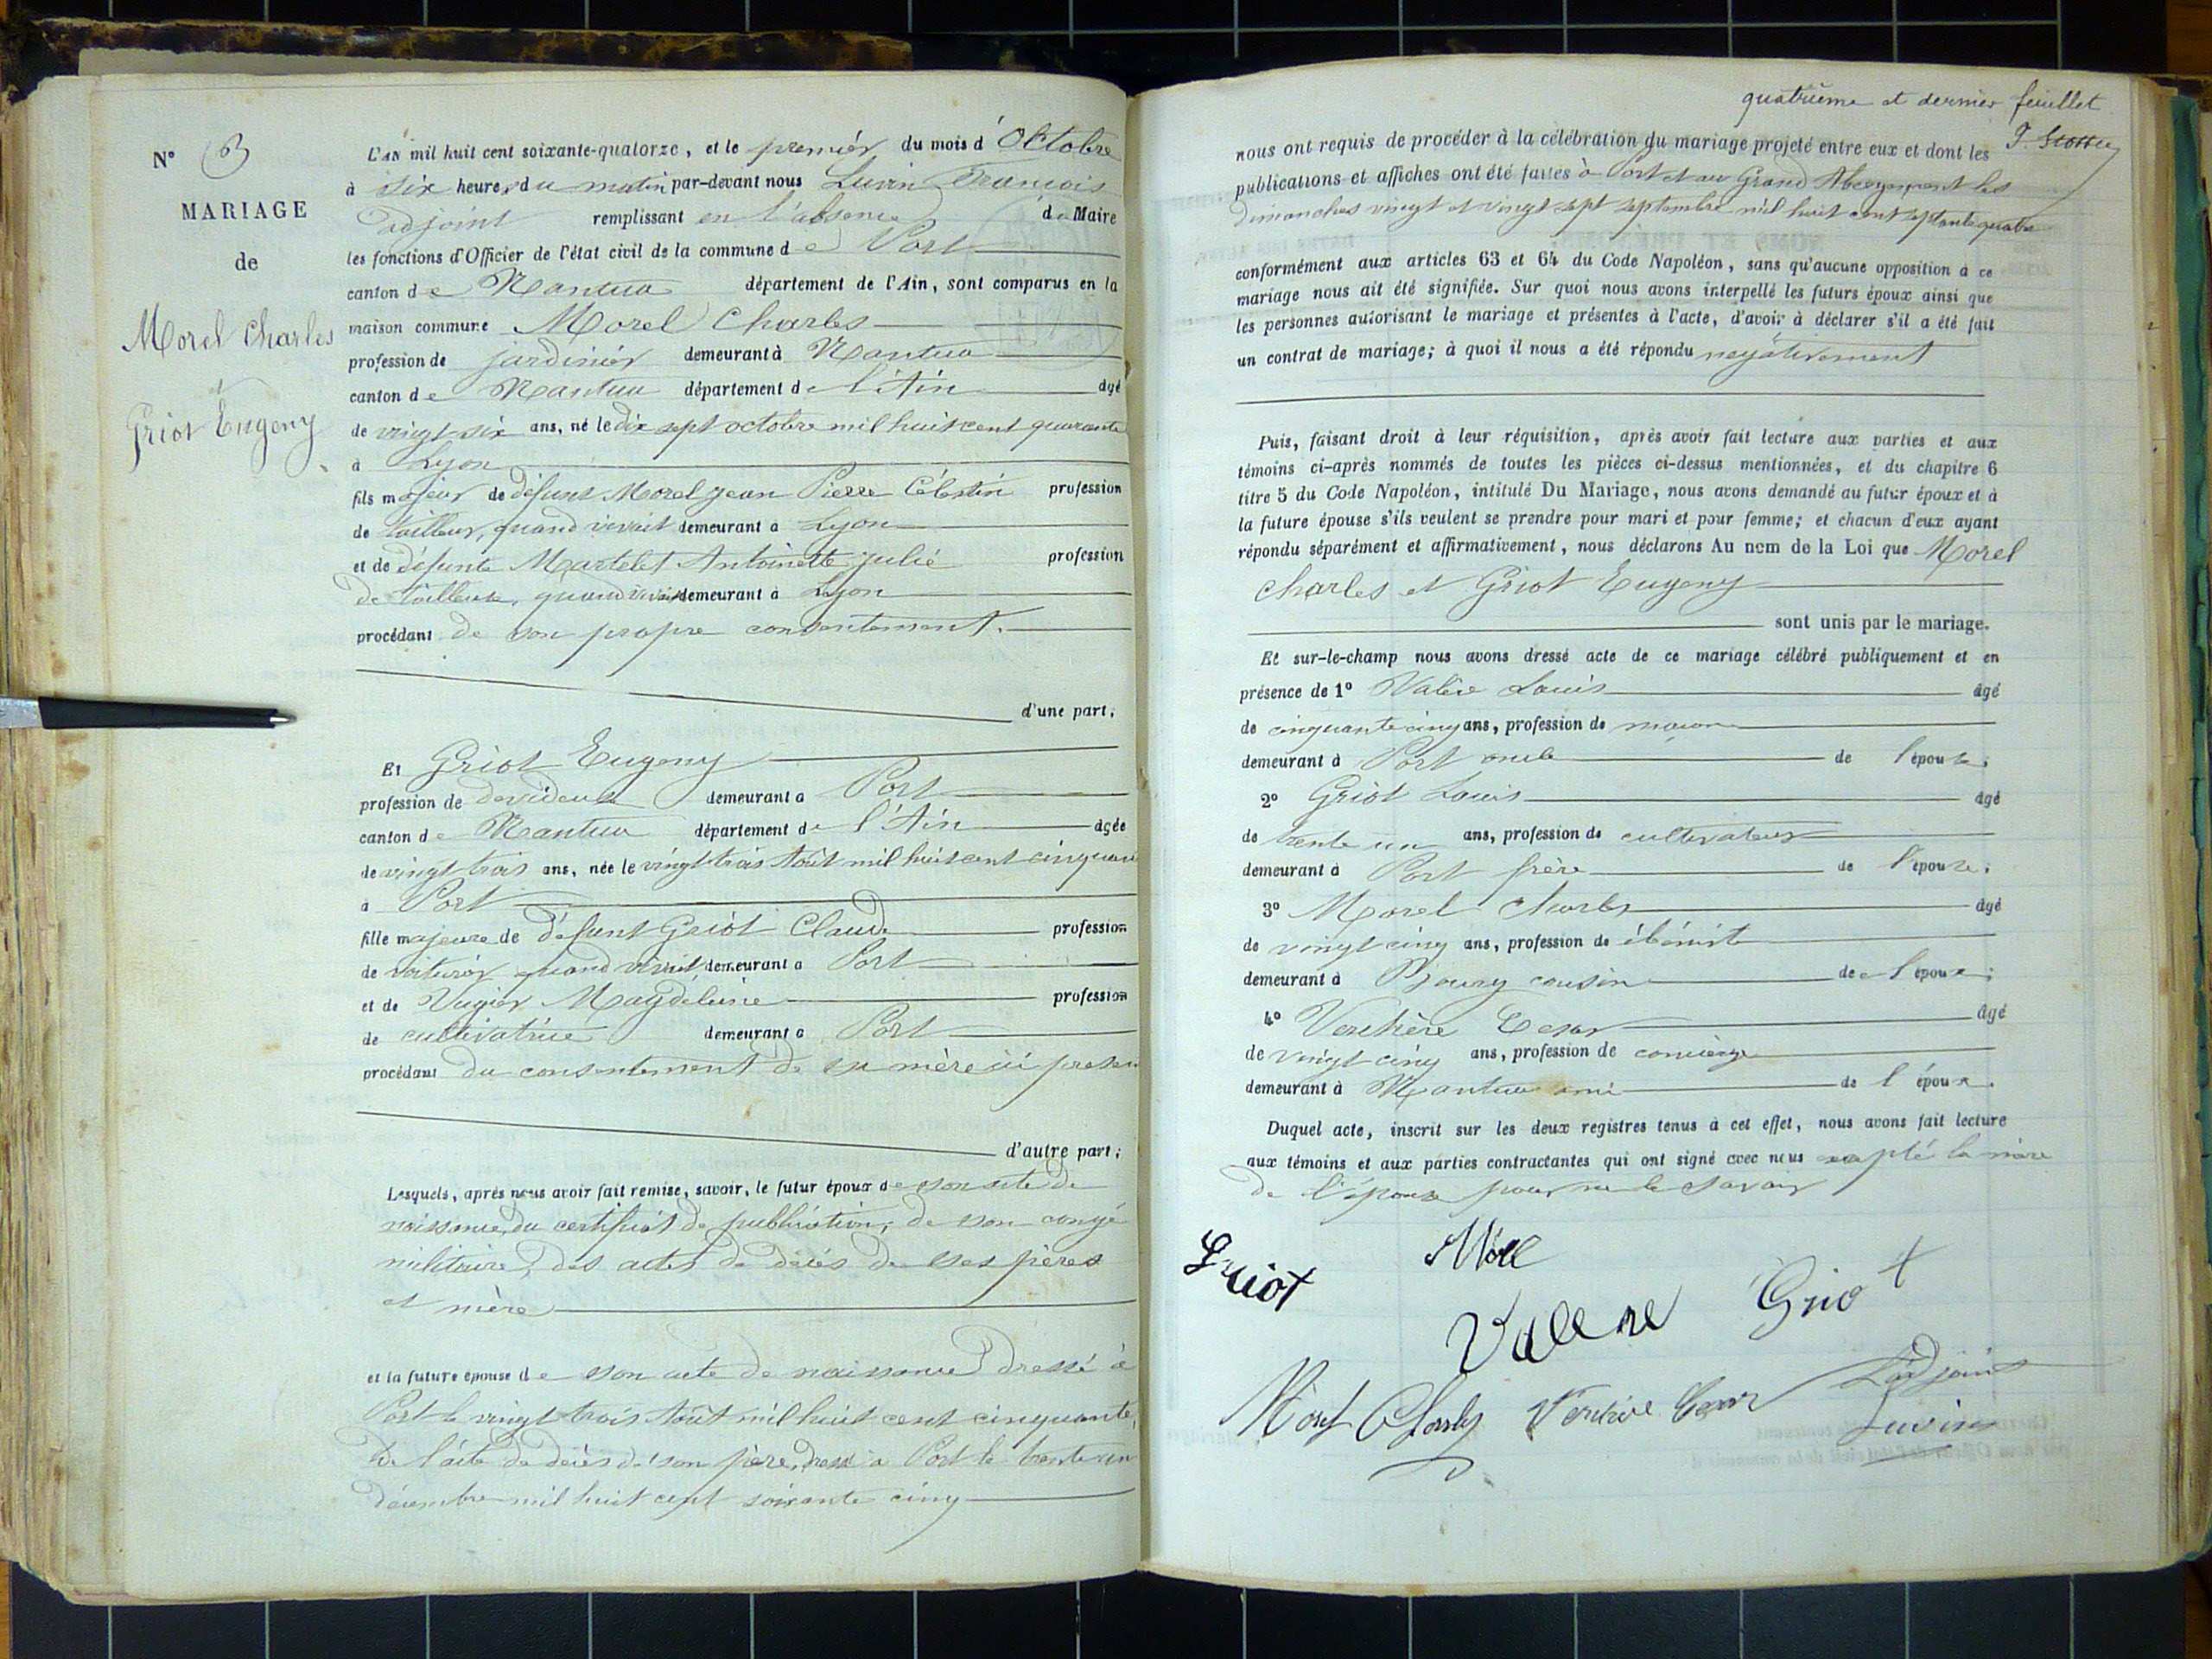 N° 3
MARIAGE
de
Morel Charles
et
Griot Eugeny
L'AN mil huit cent soixante-quatorze, et le premier du mois d'Octobre
à dix heures du matin par-devant nous Luvin François
adjoint remplissant en l'absence du Maire
les fonctions d'Officier de l'état civil de la commune de Port
canton de Nantua département de l'Ain, sont comparus en la
maison commune Morel Charles
profession de jardinier demeurant à Nantua
canton de Nantua département de l'Ain âgé
de vingt six ans, né le dix sept octobre mil huit cent quarante
à Lyon
fils majeur de défunt Morel Jean Pierre Célestin profession
de tailleur, quand vivait demeurant à Lyon
et de défunte Martelet Antoinette Julie profession
de tailleuse, quand vivait demeurant à Lyon
procédant de son propre consentement.
d'une part,
Et Griot Eugeny
profession de devideuse demeurant à Port
canton de Nantua département de l'Ain âgée
de vingt trois ans, née le vingt trois Aout mil huit cent cinquante
à Port
fille majeure de défunt Griot Claude profession
de voiturier quand vivait, demeurant à Port
et de Vugier Magdeleine profession
de cultivatrice demeurant à Port
procédant du consentement de sa mère ici presen
d'autre part;
Lesquels, après nous avoir fait remise, savoir, le futur époux de son acte de
naissance, du certificat de publication, de son congé
militaire, des actes de décès de ses pères
et mère
et la future épouse de son acte de naissance dressé à
Port le vingt trois Aout mil huit cent cinquante,
De l'acte de décès de son père, dressé à Port le trente un
décembre mil huit cent soixante cinq
quatrième et dernier feuillet
nous ont requis de procéder à la célébration du mariage projeté entre eux et dont les
publications et affiches ont été faites à Port et au Grand Abergement les
dimanches vingt et vingt sept septembre mil huit cent septante quatre
conformément aux articles 63 et 64 du Code Napoléon, sans qu'aucune opposition à ce
mariage nous ait été signifiée. Sur quoi nous avons interpellé les futurs époux ainsi que
les personnes autorisant le mariage et présentes à l'acte, d'avoir à déclarer s'il a été fait
un contrat de mariage; à quoi il nous a été répondu négativement
Puis, faisant droit à leur réquisition, après avoir fait lecture aux parties et aux
témoins ci-après nommés de toutes les pièces ci-dessus mentionnées, et du chapitre 6
titre 5 du Code Napoléon, intitulé Du Mariage, nous avons demandé au futur époux et à
la future épouse s'ils veulent se prendre pour mari et pour femme; et chacun d'eux ayant
répondu séparément et affirmativement, nous déclarons Au nom de la Loi que Morel
Charles et Griot Eugeny
sont unis par le mariage.
Et sur-le-champ nous avons dressé acte de ce mariage célébré publiquement et en
présence de 1° Valère Louis âgé
de cinquante cinq ans, profession de macon
demeurant à Port oncle de l'épouse;
2° Griot Louis âgé
de trente un ans, profession de cultivateur
demeurant à Port frère de l'épouse;
3° Morel Charles âgé
de vingt cinq ans, profession de ébéniste
demeurant à cousin de l'époux;
4° Verchère Cesar âgé
de vingt cinq ans, profession de concierge
demeurant à Nantua ami de l'époux.
Duquel acte, inscrit sur les deux registres tenus à cet effet, nous avons fait lecture
aux témoins et aux parties contractantes qui ont signé avec nous excepté la mère
de l'épouse pour ne le savoir
Griot Morel
Valere Griot
Morel Charles Verchère Cesar L'adjoint
Luvin